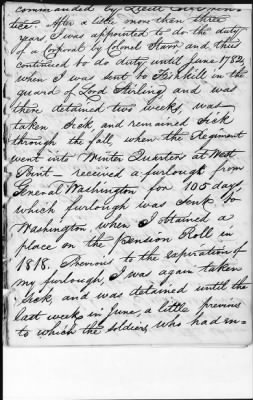 commanded by Lieut
tice. After a little more than three
years I was appointed to do the duty
of a Corporal by Colonel Starr and thus
continued to do duty until June 1782,
when I was sent to Fishkill in the
guard of Lord Stirling and was
there detained two weeks, was
taken sick, and remained sick
through the fall, when the Regiment
went into Winter Quarters at West
Point — received a furlough from
General Washington for 105 days,
which furlough was sent to
Washington when I obtained a
place on the Pension Roll in
1818. Previous to the expiration of
my furlough, I was again taken
sick, and was detained until the
last weeks in June, a little previous
to which the soldiers who had en-